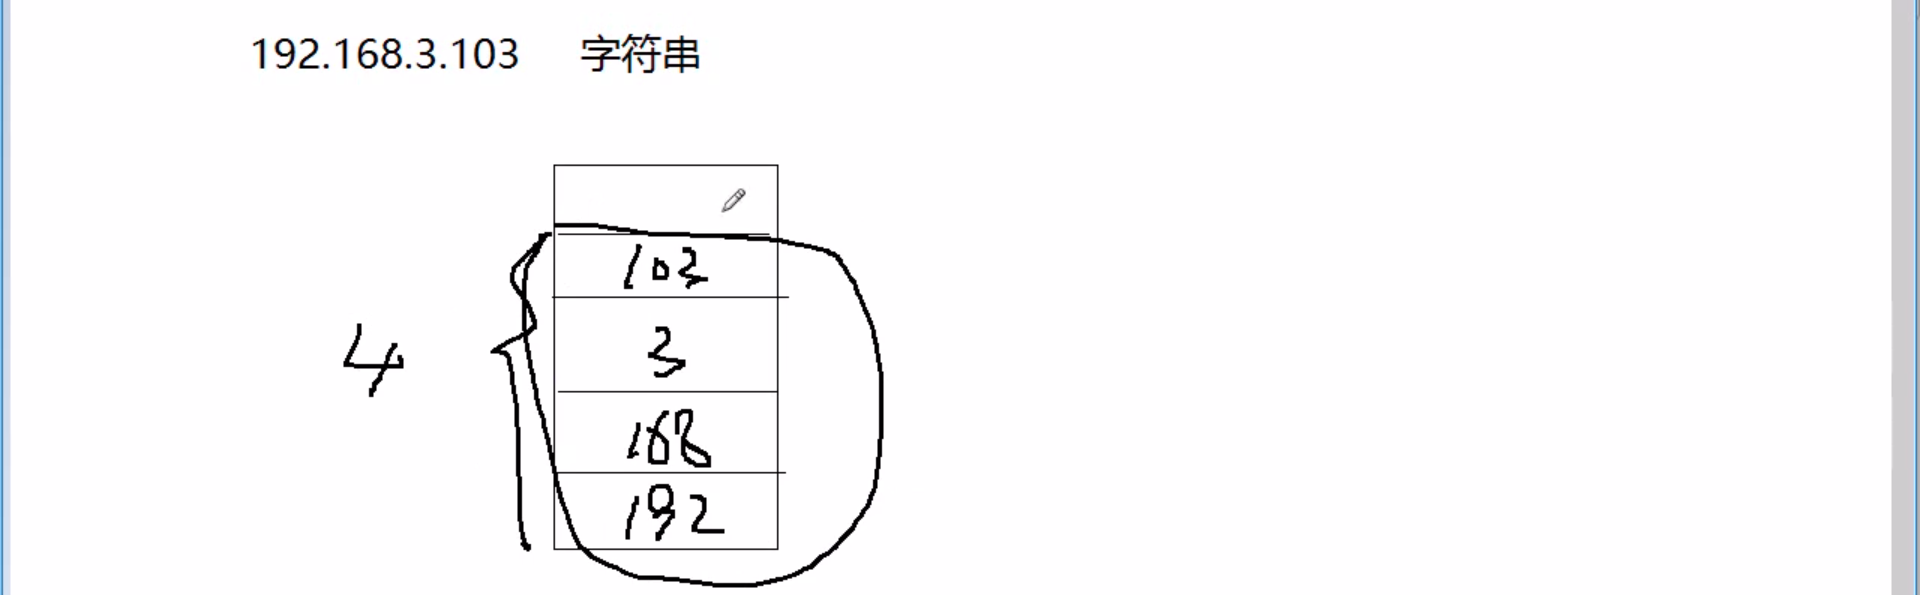 192.168.3.103 字符串
103
3
4
168
192